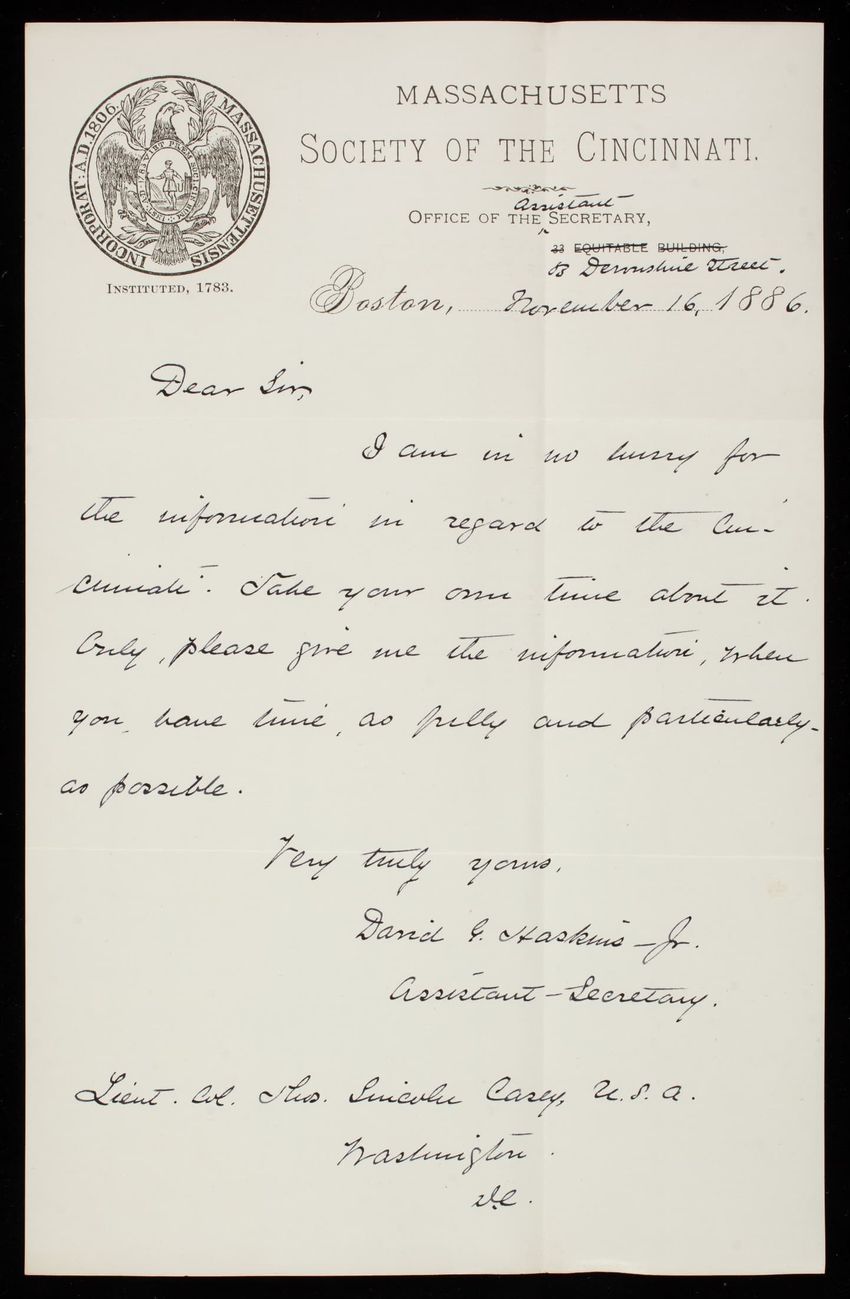 MASSACHUSETTS
SOCIETY OF THE CINCINNATI.
INCORPORAT: A.D. 1806. MASSACHUSETTENSIS
INSTITUTED, 1783.
Assistant
OFFICE OF THE SECRETARY,
33 EQUITABLE BUILDING,
Devonshire Street.
Boston, November 16, 1886.
Dear Sir,
I am in no hurry for
the information in regard to the Cin-
cinnati. Take your own time about it.
Only, please give me the information, when
you have time, as fully and particularly
as possible.
Very truly yours,
David G. Haskins Jr.
Assistant-Secretary.
Lieut. Col. Thos. Lincoln Casey, U.S.A.
Washington.
D.C.